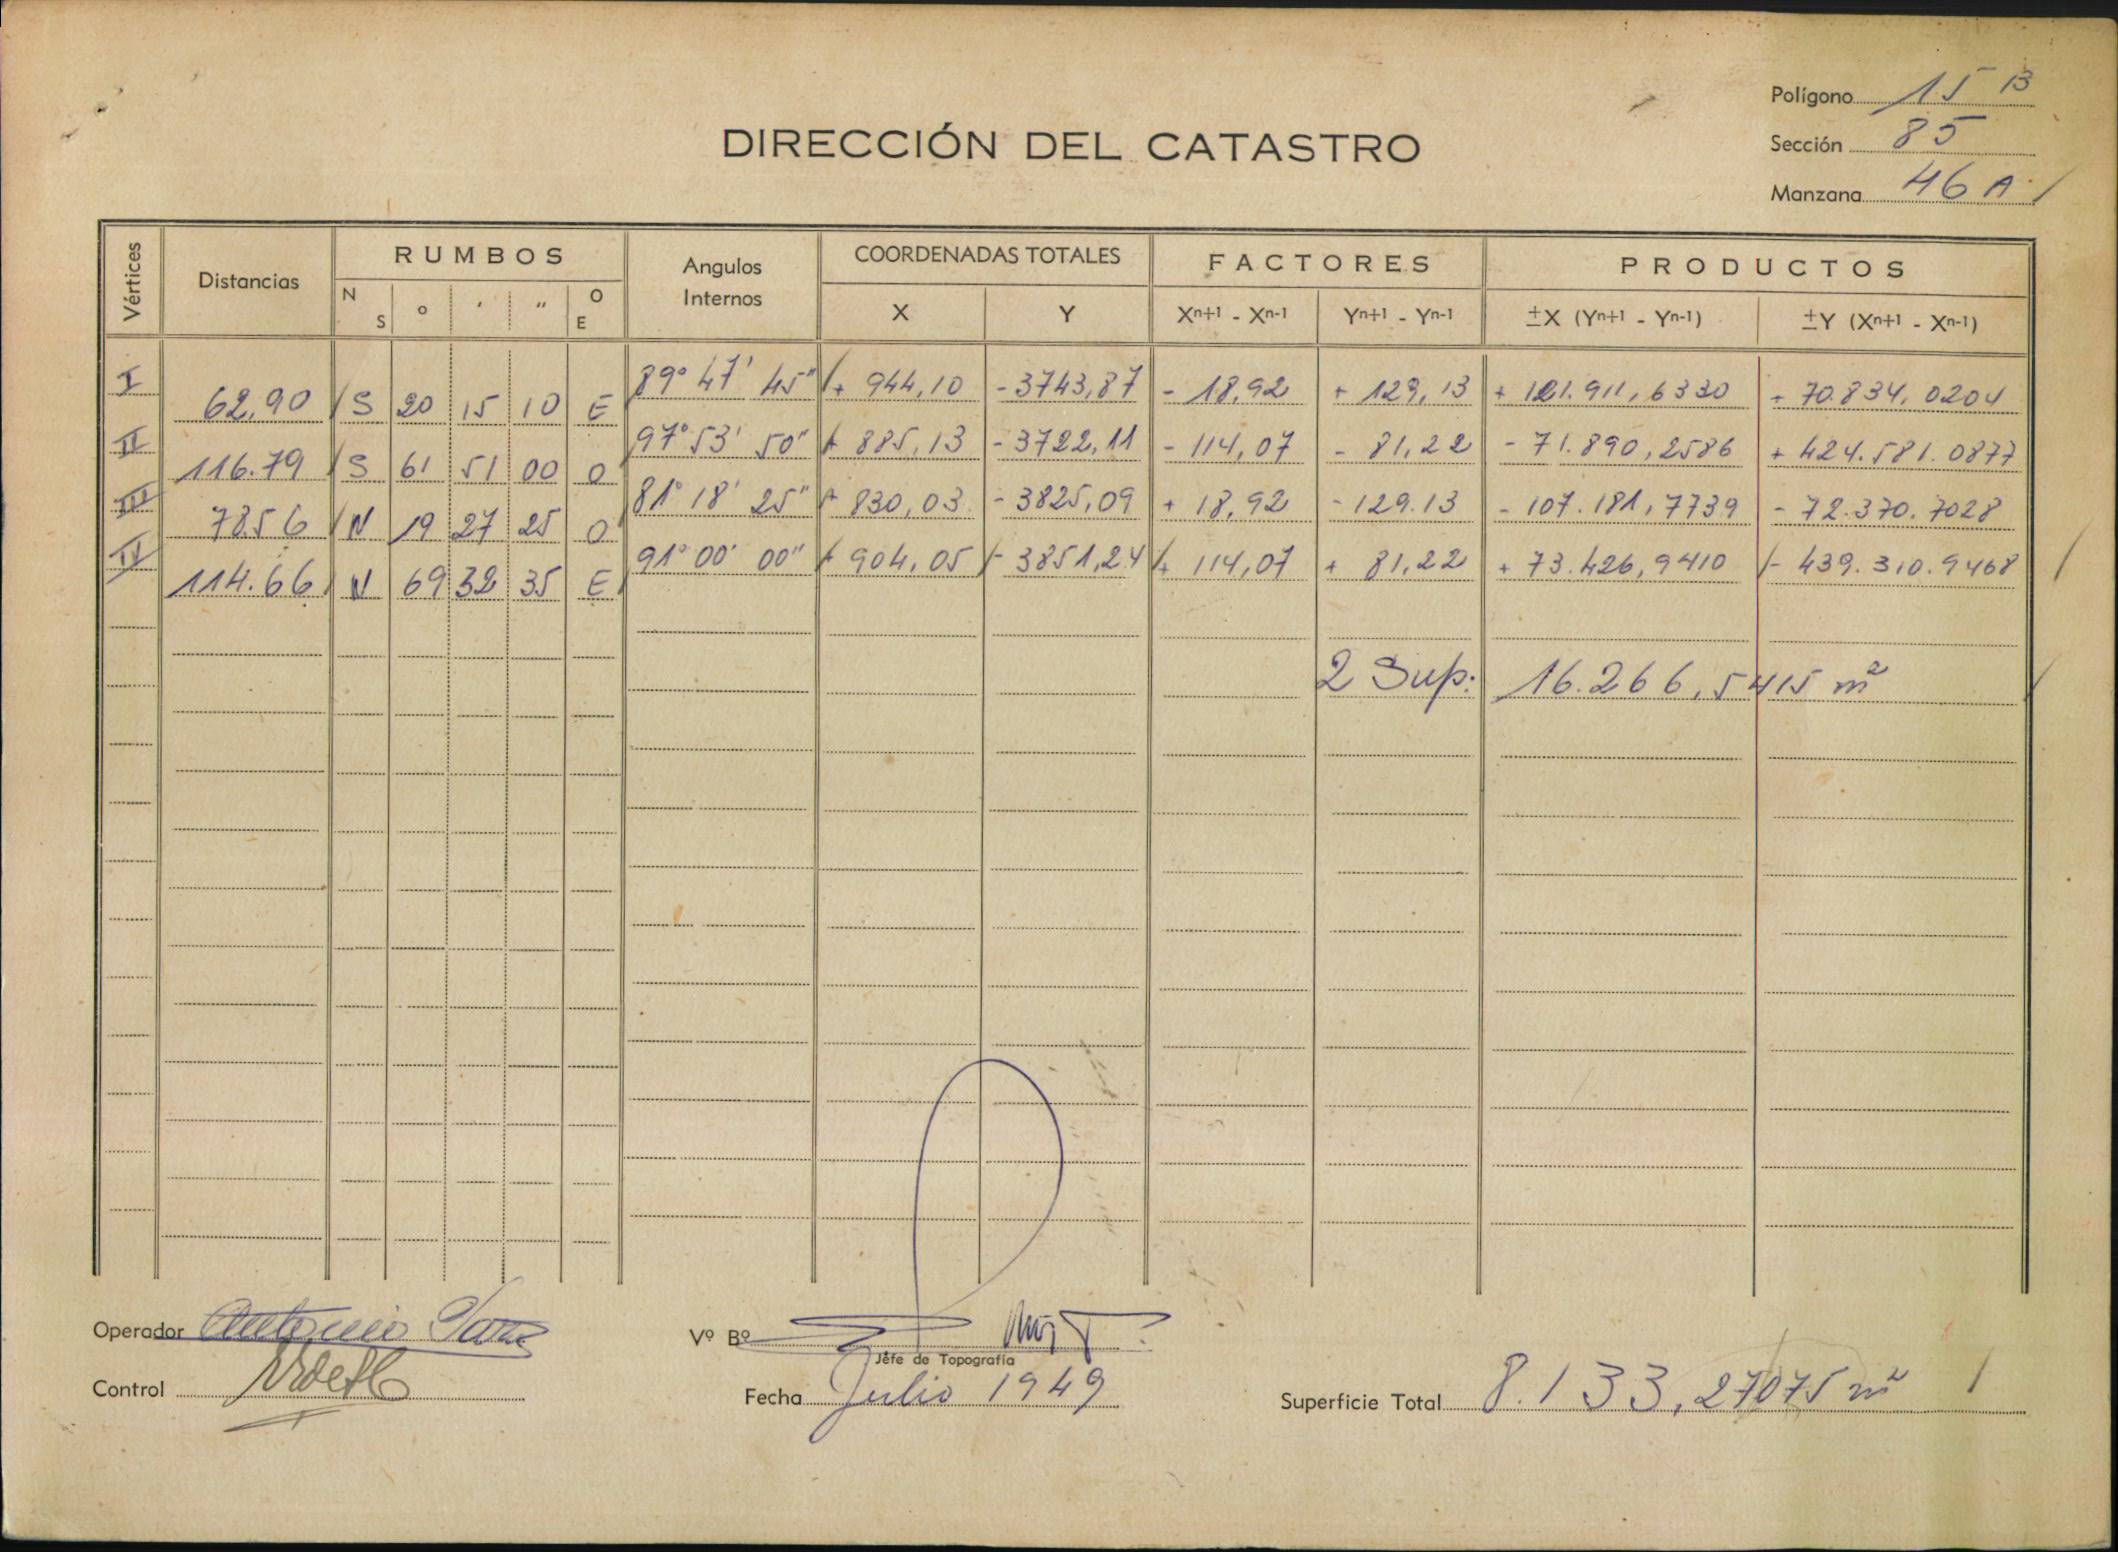 Polígono 15 B
DIRECCIÓN DEL CATASTRO
Sección 85
Manzana 46 A
Vértices Distancias RUMBOS Angulos Internos COORDENADAS TOTALES FACTORES PRODUCTOS
N S ° ' " O E X Y Xn+1 - Xn-1 Yn+1 - Yn-1 ±X (Yn+1 - Yn-1) ±Y (Xn+1 - Xn-1)
I 89° 47' 45" + 944,10 - 3743,87 - 18,92 + 129,13 + 121.911,6330 + 70.834,0204
62,90 S 20 15 10 E
II 97° 53' 50" + 885,13 - 3722,11 - 114,07 - 81,22 - 71.890,2586 + 424.581.0877
116.79 S 61 51 00 O
III 81° 18' 25" + 830,03 - 3825,09 + 18,92 - 129.13 - 107.181,7739 - 72.370.7028
78.56 N 19 27 25 O
IV 91° 00' 00" + 904,05 - 3851,24 + 114,07 + 81,22 + 73.426,9410 - 439.310.9468
114.66 N 69 32 35 E
2 Sup: 16.266,5415 m²
Operador Antonio
Vº Bº
Jefe de Topografía
Control
Fecha Julio 1949
Superficie Total 8.133,27075 m²